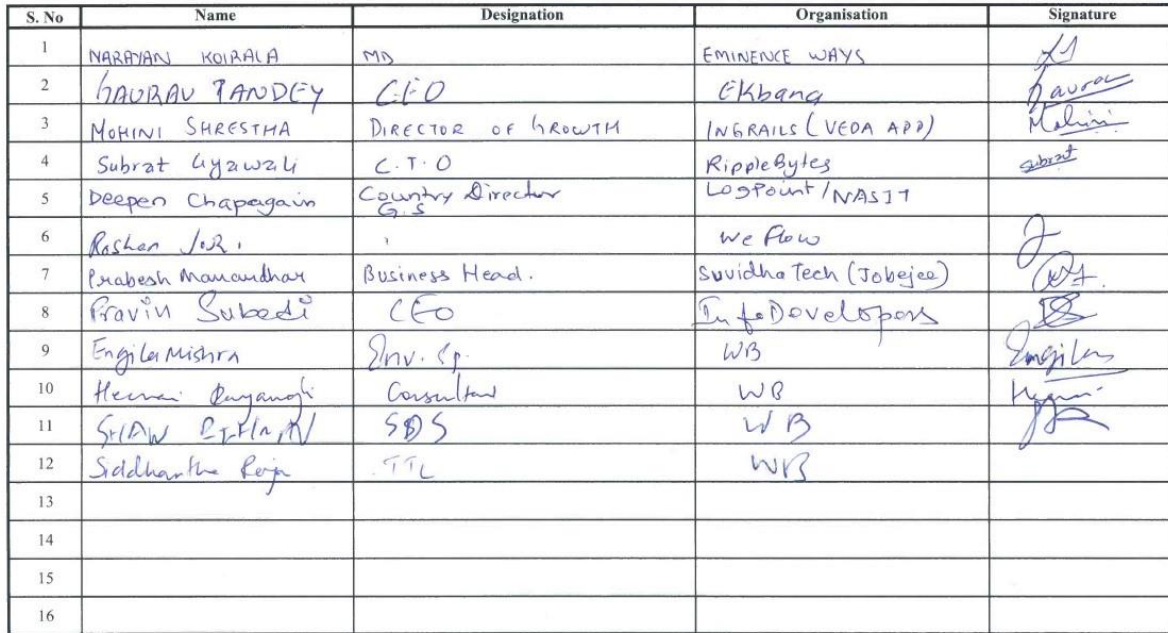 S. No Name Designation Organisation Signature
1 NARAYAN KOIRALA MD EMINENCE WAYS
2 GAURAV PANDEY CEO EKbana Gaurav
3 MOHINI SHRESTHA DIRECTOR OF GROWTH INGRAILS (VEDA APP) Mohini
4 Subrat Gyawali C.T.O RippleBytes subrat
5 Deepen Chapagain Country Director LogPoint/NASIT
G.S
6 Roshan We Flow
7 Prabesh Manandhar Business Head. Suvidha Tech (Jobejee)
8 Pravin Subedi CEO InfoDevelopers
9 Engila Mishra Env. Sp. WB Engila
10 Consultant WB
11 SDS WB
12 Siddhartha Raja TTL WB
13
14
15
16